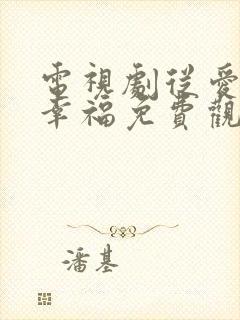 電視劇從愛
幸福免費觀
潘基